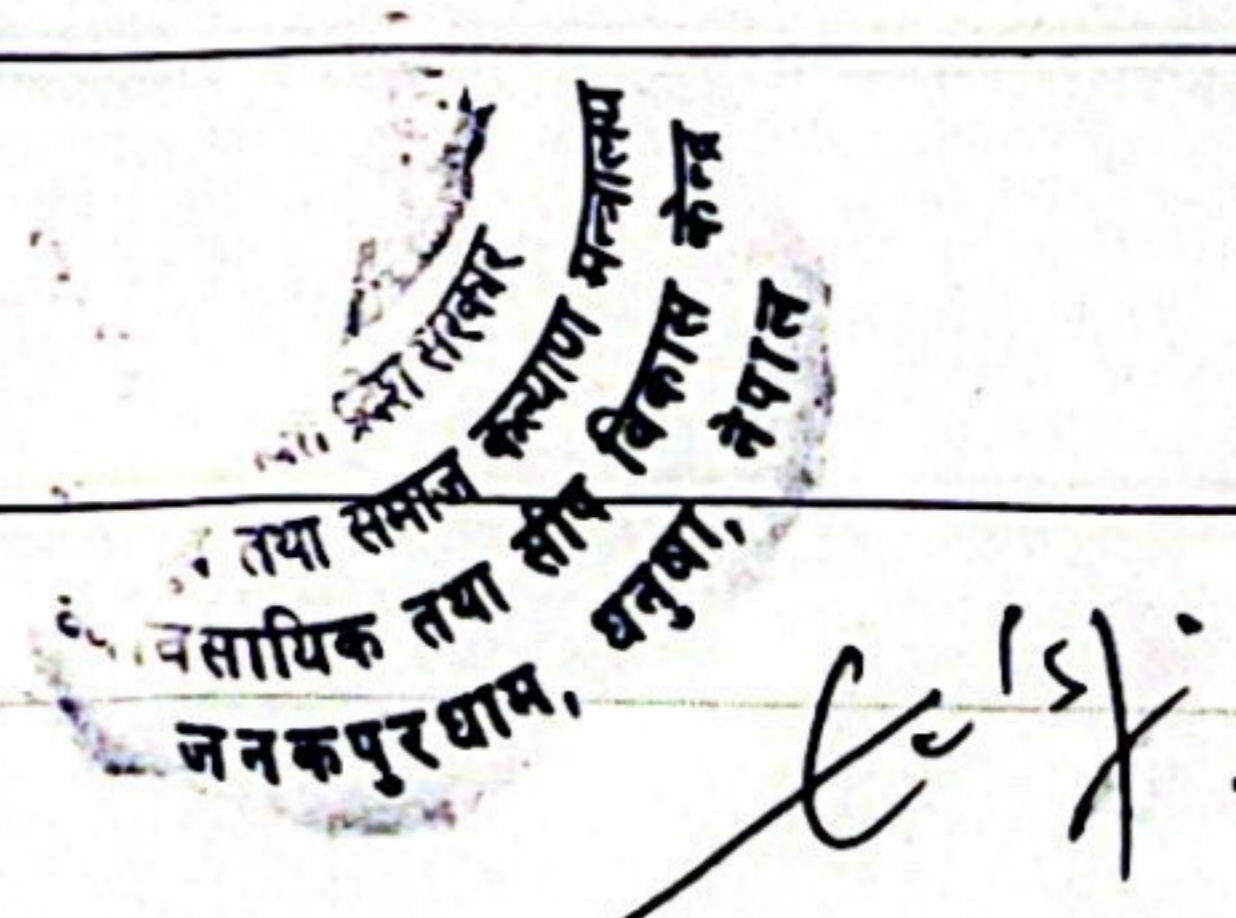 प्रदेश सरकार
तथा समाज कल्याण मन्त्रालय
तथा सीप विकास केन्द्र
जनकपुरधाम, धनुषा, नेपाल